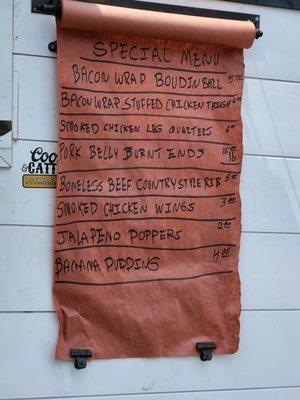 SPECIAL MENU
BACON WRAP BOUDIN BALL
BACON WRAP STUFFED CHICKEN THIGH
SMOKED CHICKEN LEG QUARTERS
PORK BELLY BURNT ENDS 15.00 lb
BONELESS BEEF COUNTRY STYLE RIB
SMOKED CHICKEN WINGS 3.00
JALAPENO POPPERS 2.00
BANANA PUDDING 4.00